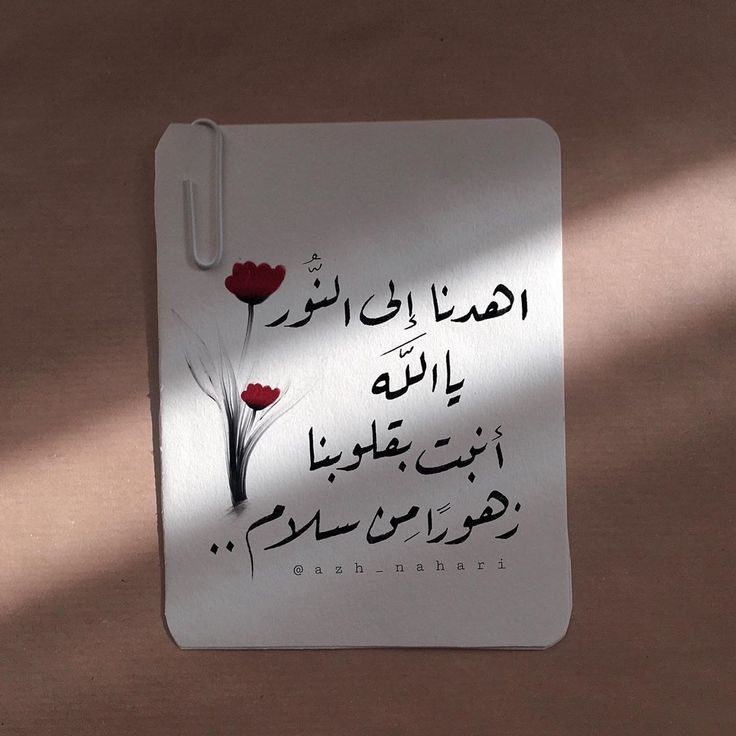 اهدنا إلى النُّور
يا اللَّه
أنبت بقلوبنا
زهورًا مِن سلام ..
@azh_nahari